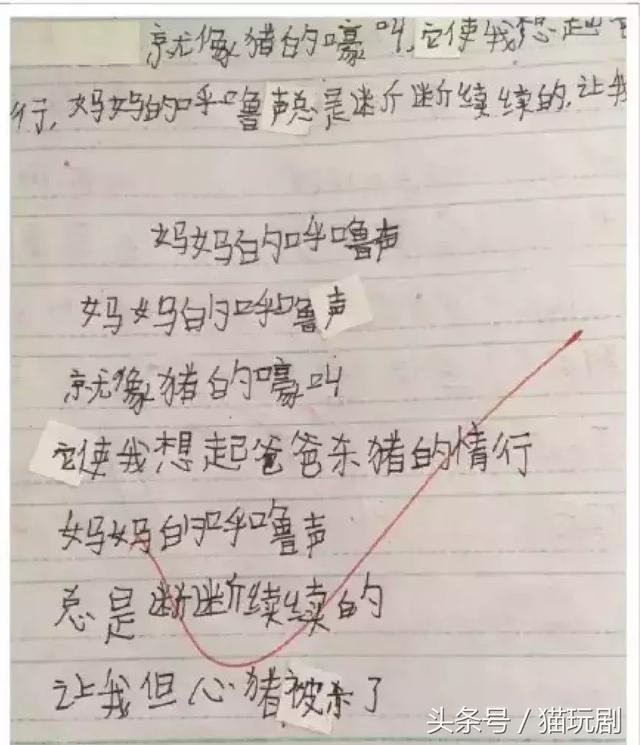 就像猪的嚎叫,它使我想起爸
行,妈妈的呼噜声总是断断续续的,让我
妈妈的呼噜声
妈妈的呼噜声
就像猪的嚎叫
它使我想起爸爸杀猪的情行
妈妈的呼噜声
总是断断续续的
让我但心猪被杀了
头条号/猫玩剧